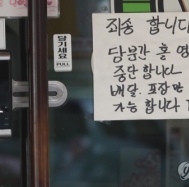 당기세요
PULL
죄송 합니다
당분간 홀 영
중단합니다
배달, 포장만
가능 합니다